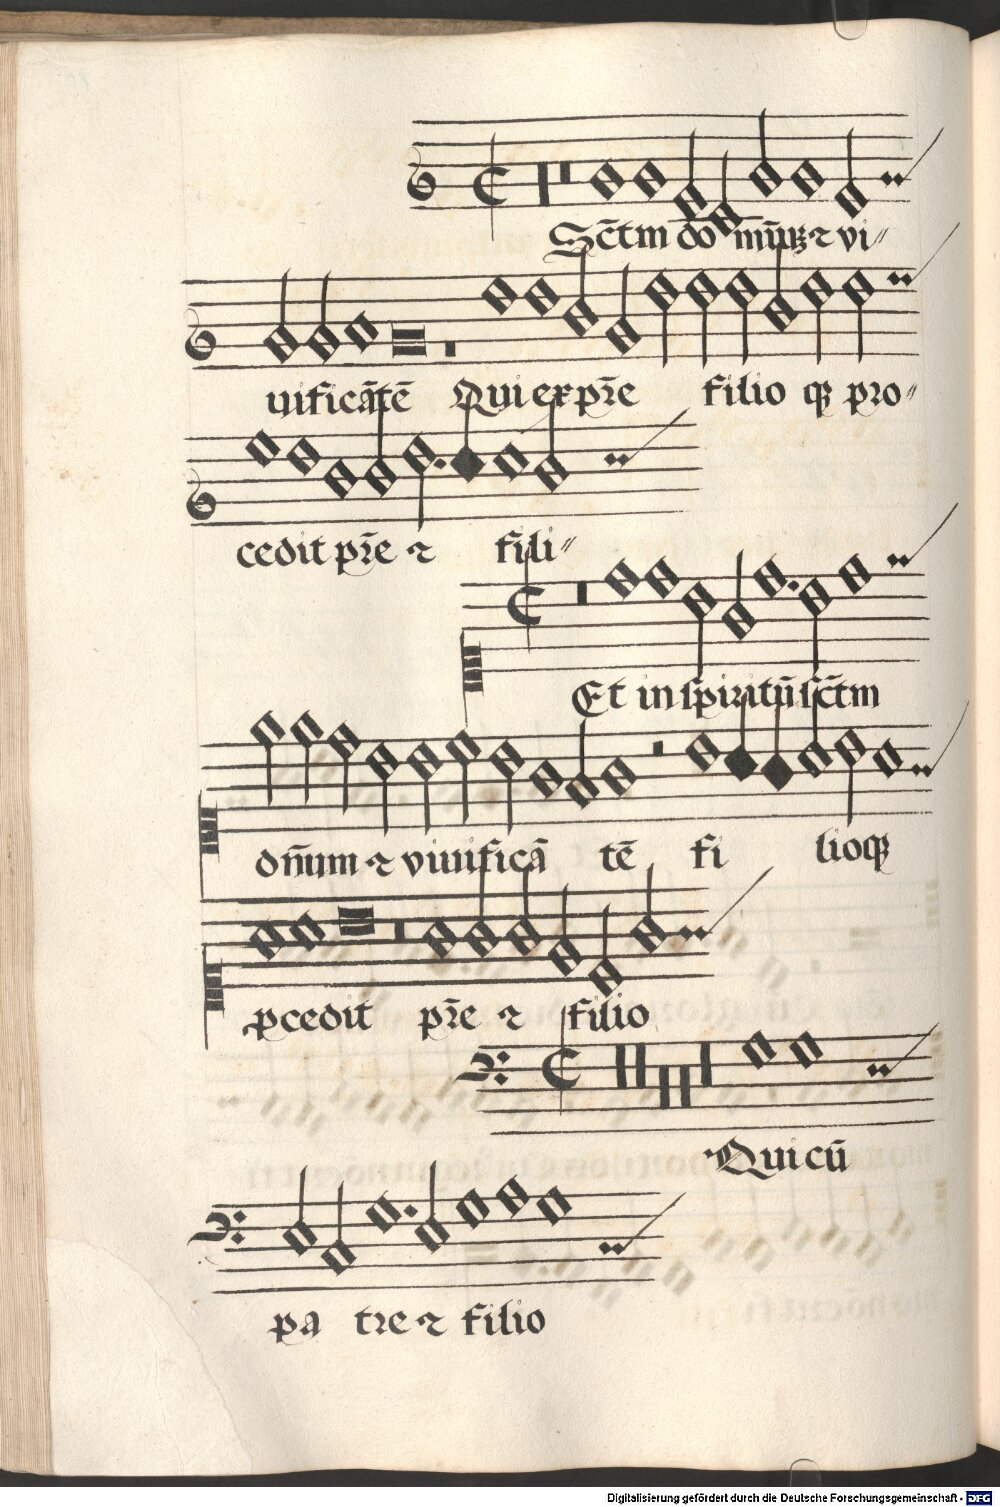 Sc̄tm do mīnū ⁊ vi〃
uificātē Qui ex pr̄e filio qꝫ pro〃
cedit pr̄e ⁊ fili〃
Et in spiritū sc̄tm
dn̄um ⁊ viuificā tē fi lioqꝫ
ꝓcedit pr̄e ⁊ filio
Qui cū
pa tre ⁊ filio
Digitalisierung gefördert durch die Deutsche Forschungsgemeinschaft - DFG